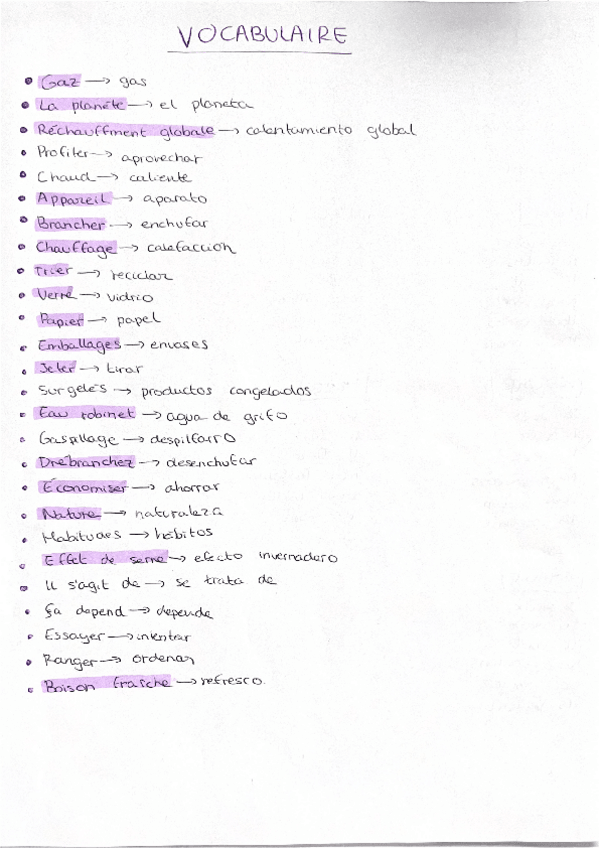 VOCABULAIRE
• Gaz → gas
• La planéte → el planeta
• Réchauffment globale → calentamiento global
• Profiter → aprovechar
• Chaud → caliente
• Appareil → aparato
• Brancher → enchufar
• Chauffage → calefacción
• Trier → reciclar
• Verre → vidrio
• Papier → papel
• Emballages → envases
• Jeter → tirar
• Surgelés → productos congelados
• Eau robinet → agua de grifo
• Gaspillage → despilfarro
• Drébranchez → desenchufar
• Économiser → ahorrar
• Nature → naturaleza
• Habitudes → hábitos
• Effet de serre → efecto invernadero
• Il s'agit de → se trata de
• Ça depend → depende
• Essayer → intentar
• Ranger → ordenar
• Boison fraîche → refresco